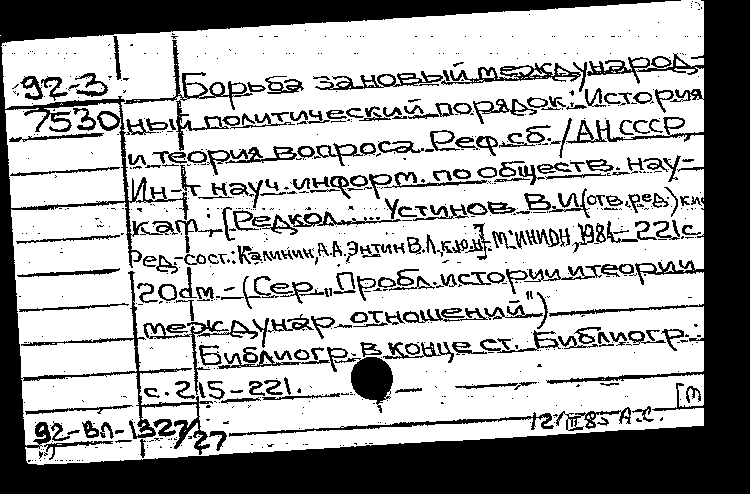 92-3 Борьба за новый международ-
7530 ный политический порядок: История
и теория вопроса. Реф. сб. / АН СССР,
Ин-т науч. информ. по обществ. нау-
кам; [Редкол.: ... Устинов В.И. (отв. ред.)
Ред.-сост.: Калинин А.А., Энтин В.Л., к.ю.н.]. М.: ИНИОН, 1984. - 221 с.
20 см - (Сер. „Пробл. истории и теории
междунар. отношений")
Библиогр. в конце ст. Библиогр.:
с. 215-221.
[М
92-ВЛ-1327/27 12/III 85 А.С.